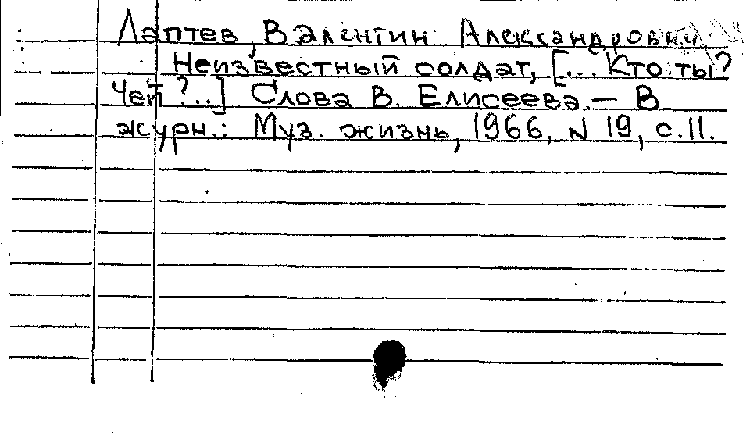 Лаптев, Валентин Александрович
Неизвестный солдат, [... Кто ты?
Чей?..] Слова В. Елисеева. — В
журн.: Муз. жизнь, 1966, N 19, с.11.